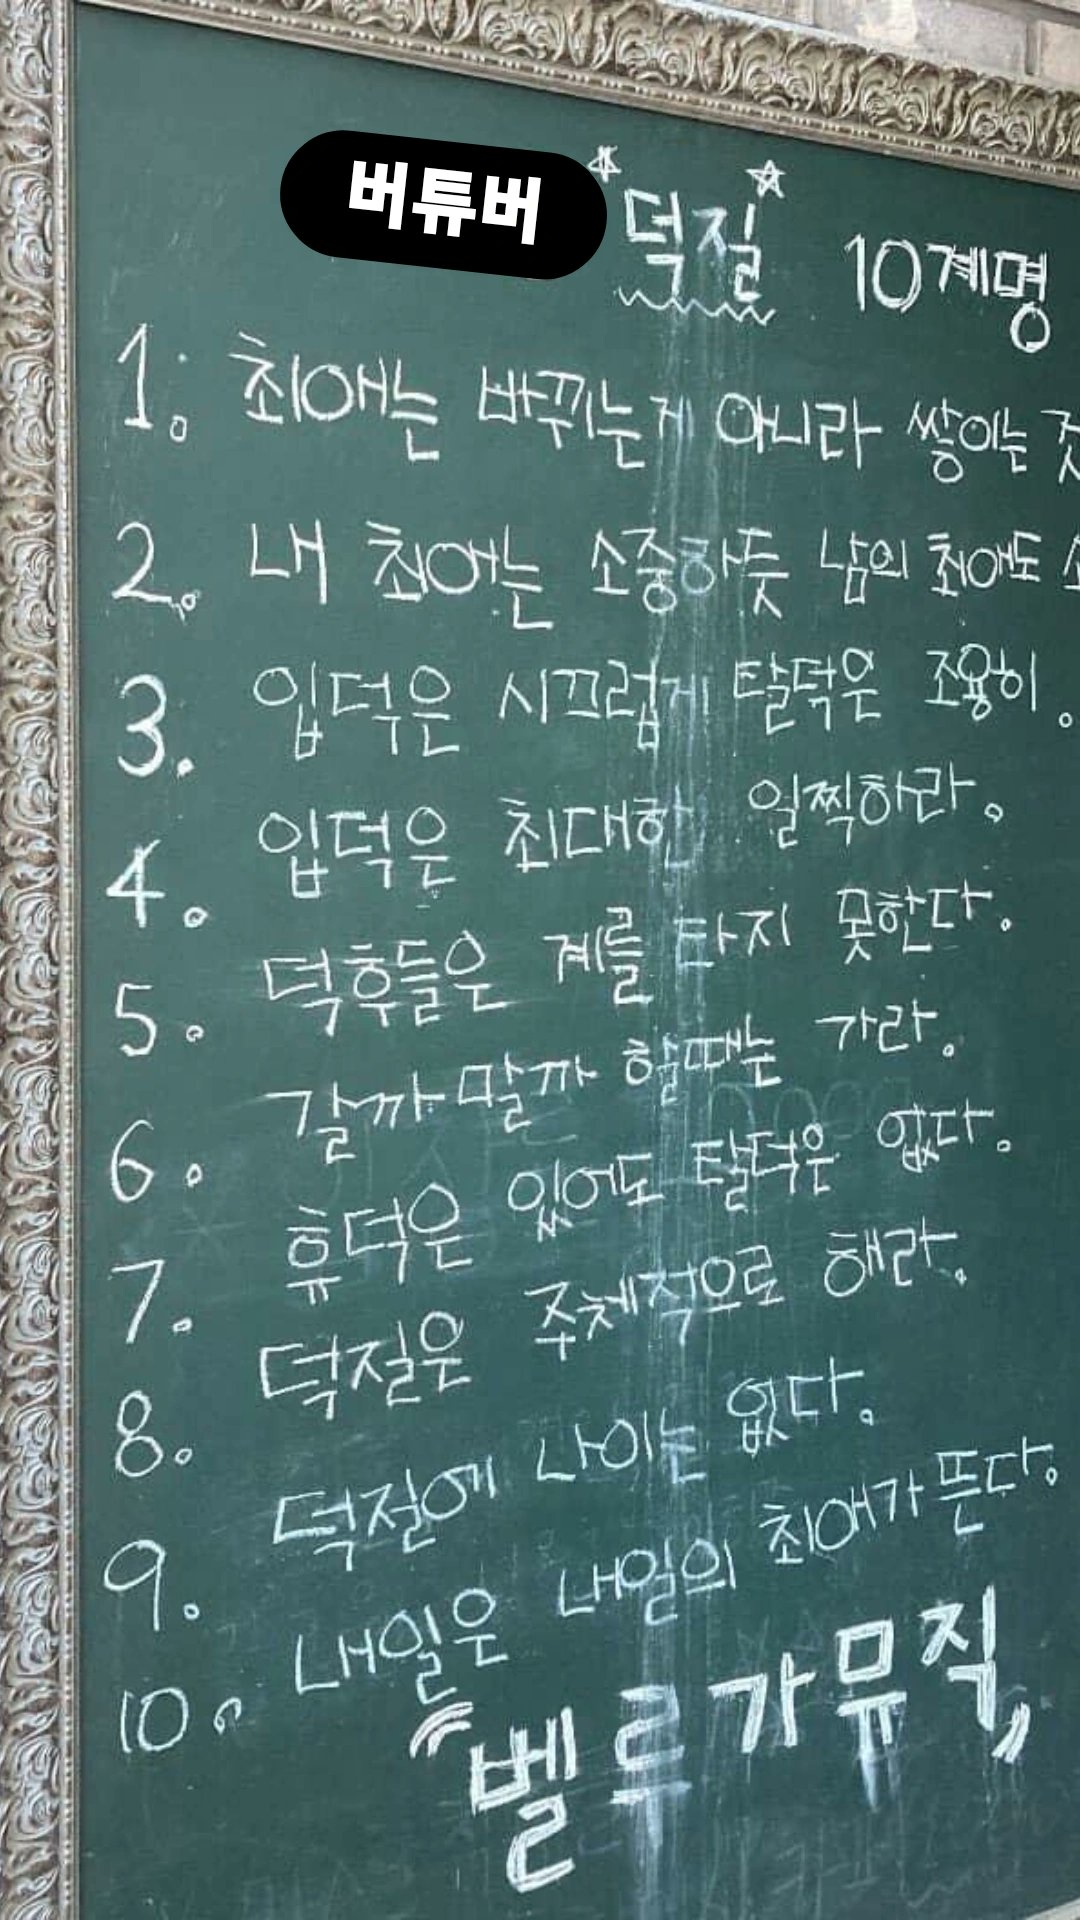 버튜버 "덕질" 10계명
1. 최애는 바뀌는게 아니라 쌓이는 것
2. 내 최애는 소중하듯 남의 최애도 소
3. 입덕은 시끄럽게 탈덕은 조용히.
4. 입덕은 최대한 일찍하라.
5. 덕후들은 계를 타지 못한다.
6. 갈까말까 할때는 가라.
7. 휴덕은 있어도 탈덕은 없다.
8. 덕질은 주체적으로 해라.
9. 덕질에 나이는 없다.
10. 내일은 내일의 최애가 뜬다.
"벨르가뮤직"